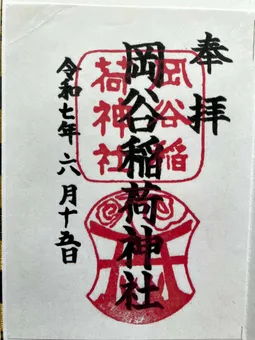 奉拝
岡谷稲荷神社
岡谷稲
荷神社
令和七年六月十五日